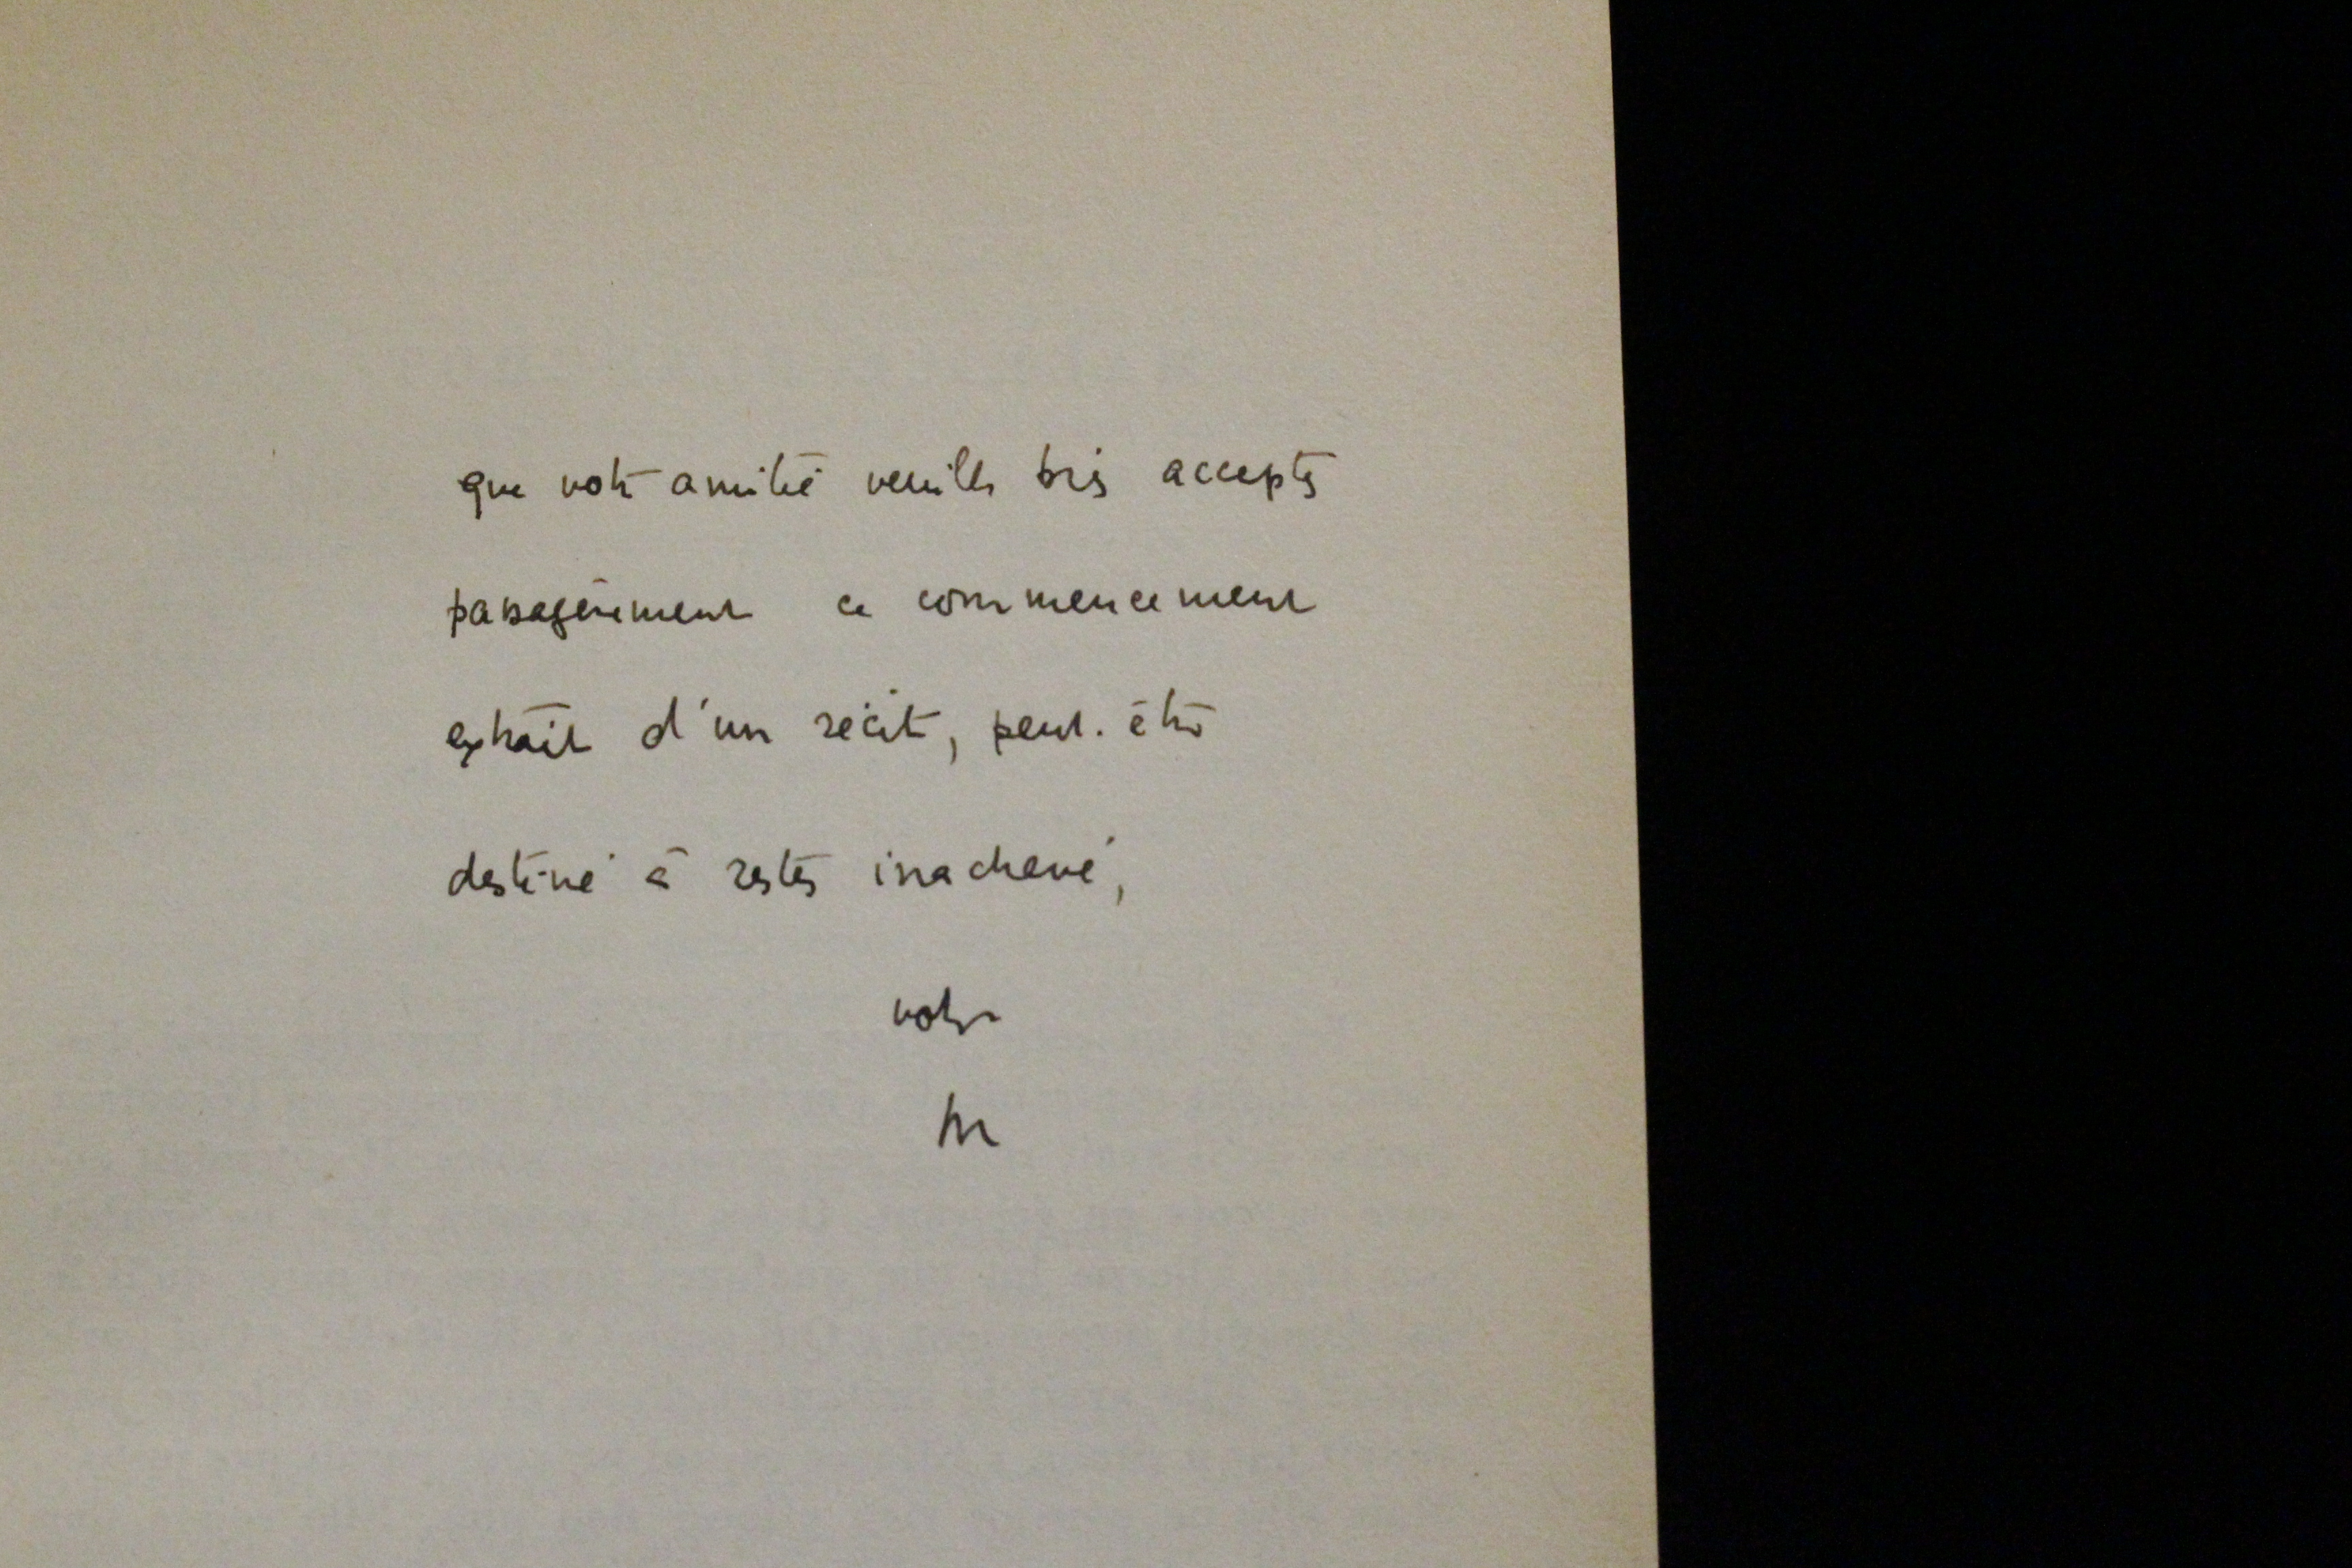 que votre amitié veuille bien accepter
passagèrement ce commencement
extrait d'un récit, peut-être
destiné à rester inachevé,
votre
M